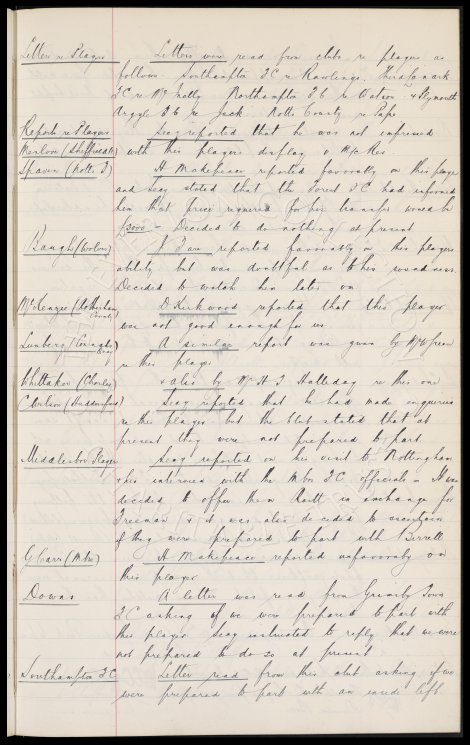 Letters re Players Letters were read from clubs re players as
follows Southampton FC re Rawlings, Third Lanark
FC re McInally Northampton FC re Watson & Plymouth
Argyle FC re Jack Notts County re Pape
Reports re Players Secy reported that he was not impressed
(Sheffield) with this players display v McRee
Spaven (Notts F) H Makepeace reported favorably on this player
and Secy stated that the Forest FC had informed
him that price required for his transfer would be
£3000 - Decided to do nothing at present
Baugh (Wolves) reported favourably on this players
ability but was doubtful as to his soundness
Decided to watch him later on
McKenzie (Rotherham County) D Kirkwood reported that this player
was not good enough for us
A similar report was given by Mr
re this player
Whittaker (Chorley) & also by Mr H J Halliday re this one
C Wilson (Huddersfield) Secy reported that he had made enquiries
re this player but the club stated that at
present they were not prepared to part
Middlesbro Player Secy reported on his visit to Nottingham
& his interview with the Mbro FC officials It was
decided to offer them Raitt in exchange for
Freeman & it was also decided to ascertain
if they were prepared to part with Birrell
G Carr (Mbro) H Makepeace reported unfavorably on
this player
Downs A letter was read from Grimsby Town
FC asking if we were prepared to part with
this player Secy instructed to reply that we were
not prepared to do so at present
Southampton FC Letter read from this club asking if we
were prepared to part with an inside left